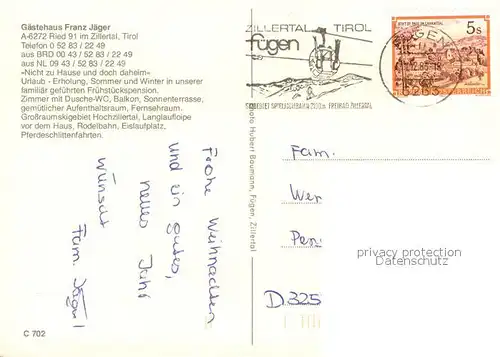 Gästehaus Franz Jäger
A-6272 Ried 91 im Zillertal, Tirol
Telefon 0 52 83 / 22 49
aus BRD 00 43 / 52 83 / 22 49
aus NL 09 43 / 52 83 / 22 49
»Nicht zu Hause und doch daheim«
Urlaub - Erholung, Sommer und Winter in unserer
familiär geführten Frühstückspension.
Zimmer mit Dusche-WC, Balkon, Sonnenterrasse,
gemütlicher Aufenthaltsraum, Fernsehraum.
Großraumskigebiet Hochzillertal, Langlaufloipe
vor dem Haus, Rodelbahn, Eislaufplatz,
Pferdeschlittenfahrten.
Frohe Weihnachten
und ein gutes,
neues Jahr
wünscht
Fam. Jäger
C 702
Foto Hubert Baumann, Fügen, Zillertal
ZILLERTAL TIROL
fügen
5s
Fam.
Wer
Pen
privacy protection
Datenschutz
D 325